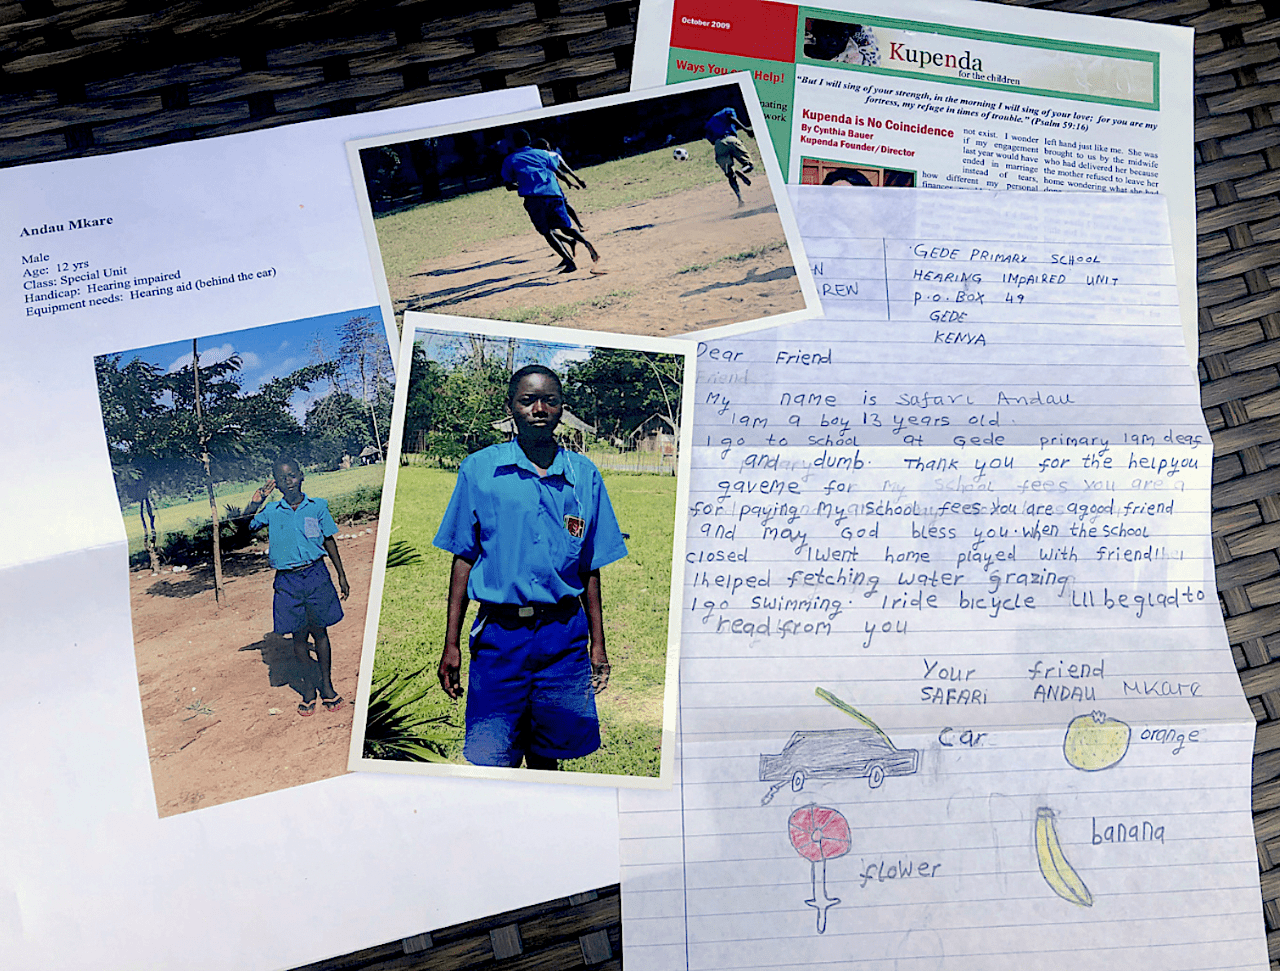 Andau Mkare
Male
Age: 12 yrs
Class: Special Unit
Handicap: Hearing impaired
Equipment needs: Hearing aid (behind the ear)
October 2009
Kupenda
for the children
Ways You Help!
"But I will sing of your strength, in the morning I will sing of your love; for you are my
fortress, my refuge in times of trouble." (Psalm 59:16)
Kupenda is No Coincidence
By Cynthia Bauer
Kupenda Founder/Director
not exist. I wonder
if my engagement
last year would have
ended in marriage
instead of tears,
how different my personal
left hand just like me. She was
brought to us by the midwife
who had delivered her because
the mother refused to leave her
home wondering what she had
GEDE PRIMARY SCHOOL
HEARING IMPAIRED UNIT
P.O.BOX 49
GEDE
KENYA
Dear Friend
Friend
My name is Safari Andau
I am a boy 13 years old.
I go to school at Gede primary I am deaf
and dumb. Thank you for the help you
gave me for my school fees you are a
for paying my school fees. You are a good friend
and may God bless you. when the school
closed I went home played with friend
I helped fetching water grazing
I go swimming. I ride bicycle I'll be glad to
read from you
Your friend
SAFARI ANDAU MKARE
car
orange
flower
banana